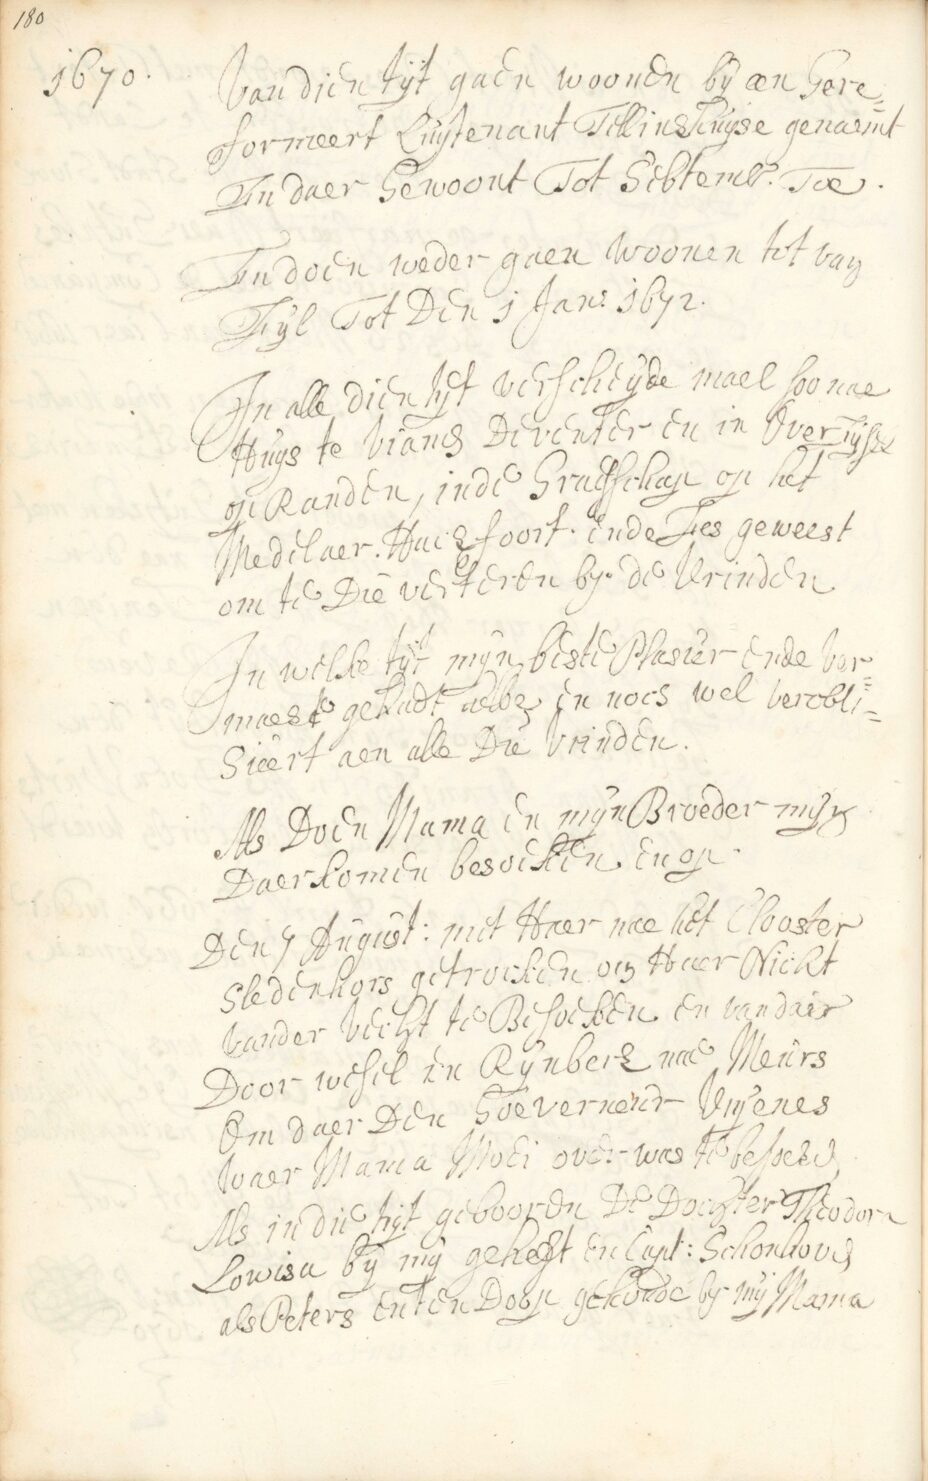 180
1670.
Van dien tyt gaen woonen by een Gere=
formeert Luytenant Tillinskuyse genaemt
En daer Gewoont Tot Sebtembr. Toe.
En doen weder gaen woonen tot van
Tyl Tot Den 1 Jan: 1672.
In alle dien tyt verscheyde mael soo nae
Huys te Vianes Deventer en in Over Iyssel
op Randen, inde Graefschap op het
Medelaer. Hacsfoort. ende Ees geweest
om te Die verteren by de Vrinden
In welke tyt myn beste Plasier ende Ver=
maeck gehadt hebbe en nocs wel verobli=
sieert aen alle Die Vrinden.
Als Doen Mama en myn Broeder myn
Daer komen besoeken en op
Den 7 August: met Haer nae het Clooster
Sledenhors getrocken om Haer Nicht
vander Vecht te Besoeken en van daer
Door wesel en Rynberk nae Meurs
Om daer Den Goeverneur
waer Mama Moei over was te
Als in die tyt gebooren De Dochter Theodora
Lowisa by my geheft en Capt: Schonhove
als Peters en ten Doop gehoude by myn Mama